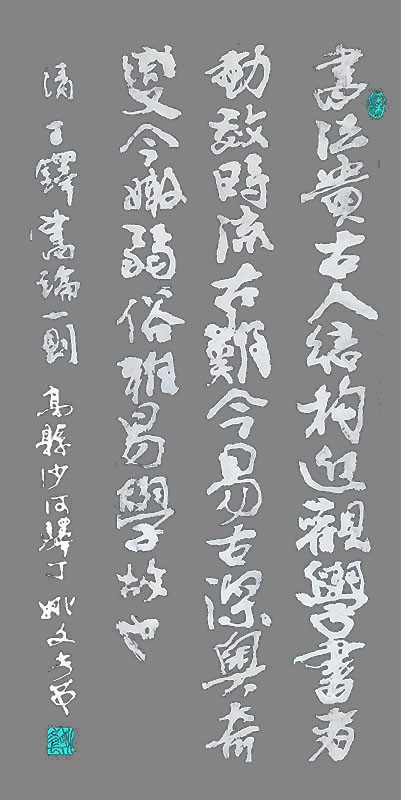 書法貴古人結構近觀學書者
動效時流古難今易古深奧奇
變今嫩弱俗雅易學故也
清王鐸書論一則高縣沙河驛姚文書